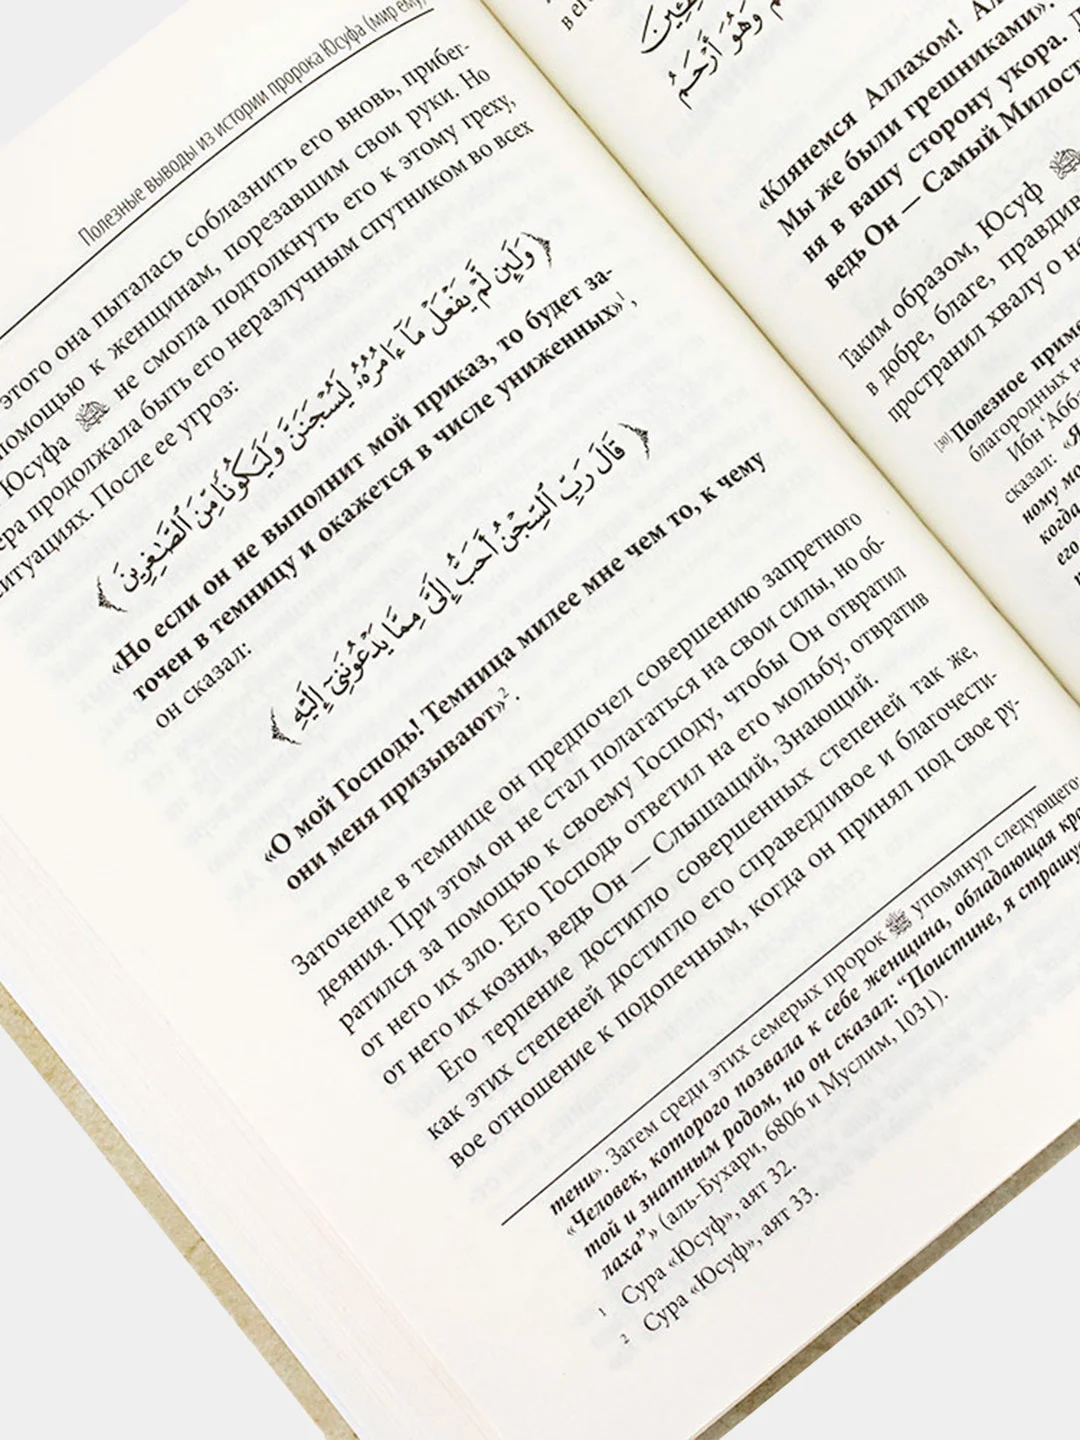 Полезные выводы из истории пророка Юсуфа (мир ему)
этого она пыталась соблазнить его вновь, прибег-
помощью к женщинам, порезавшим свои руки. Но
Юсуфа ﷺ не смогла подтолкнуть его к этому греху,
продолжала быть его неразлучным спутником во всех
ситуациях. После ее угроз:
﴿وَلَئِن لَّمْ يَفْعَلْ مَآ ءَامُرُهُۥ لَيُسْجَنَنَّ وَلَيَكُونًا مِّنَ ٱلصَّٰغِرِينَ﴾
«Но если он не выполнит мой приказ, то будет за-
точен в темницу и окажется в числе униженных»¹,
он сказал:
﴿قَالَ رَبِّ ٱلسِّجْنُ أَحَبُّ إِلَىَّ مِمَّا يَدْعُونَنِىٓ إِلَيْهِ﴾
«О мой Господь! Темница милее мне чем то, к чему
они меня призывают»².
Заточение в темнице он предпочел совершению запретного
деяния. При этом он не стал полагаться на свои силы, но об-
ратился за помощью к своему Господу, чтобы Он отвратил
от него их зло. Его Господь ответил на его мольбу, отвратив
от него их козни, ведь Он — Слышащий, Знающий.
Его терпение достигло совершенных степеней так же,
как этих степеней достигло его справедливое и благочести-
вое отношение к подопечным, когда он принял под свое ру-
тени». Затем среди этих семерых пророк ﷺ упомянул следующего:
«Человек, которого позвала к себе женщина, обладающая
той и знатным родом, но он сказал: “Поистине, я страшусь
лаха”» (аль-Бухари, 6806 и Муслим, 1031).
¹ Сура «Юсуф», аят 32.
² Сура «Юсуф», аят 33.
وَهُوَ أَرْحَمُ
«Клянемся Аллахом!
Мы же были грешниками».
ня в вашу сторону укора.
ведь Он — Самый
Таким образом, Юсуф
в добре, благе,
пространил хвалу о
[30] Полезное
благородных
Ибн ‘Абб
сказал: «Я
ному
когда
его